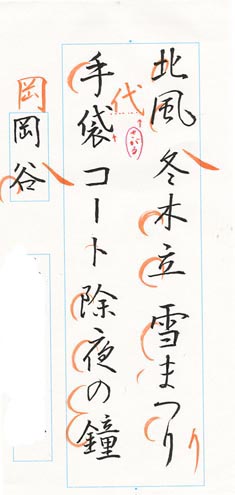 北風 冬木立 雪まつり
手袋 コート 除夜の鐘
代
さがる
岡
岡谷